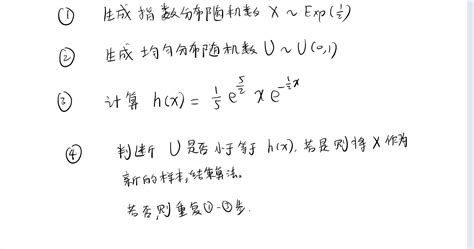 ① 生成指数分布随机数 X ~ Exp(½)
② 生成均匀分布随机数 U ~ U(0,1)
③ 计算 h(x) = 1/5 e^{5/2} x e^{-½x}
④ 判断 U 是否小于等于 h(x), 若是则将 X 作为
新的样本, 结束算法。
若否, 则重复①-③步.